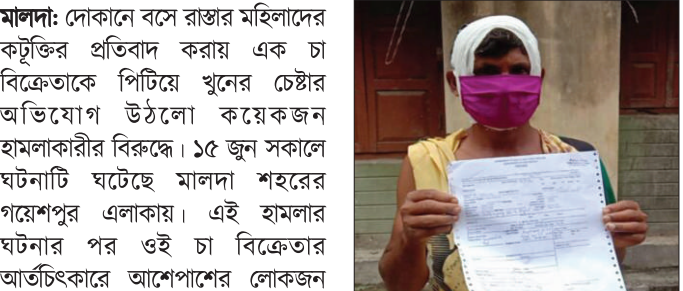 মালদা: দোকানে বসে রাস্তার মহিলাদের
কটূক্তির প্রতিবাদ করায় এক চা
বিক্রেতাকে পিটিয়ে খুনের চেষ্টার
অভিযোগ উঠলো কয়েকজন
হামলাকারীর বিরুদ্ধে। ১৫ জুন সকালে
ঘটনাটি ঘটেছে মালদা শহরের
গয়েশপুর এলাকায়। এই হামলার
ঘটনার পর ওই চা বিক্রেতার
আর্তচিৎকারে আশেপাশের লোকজন